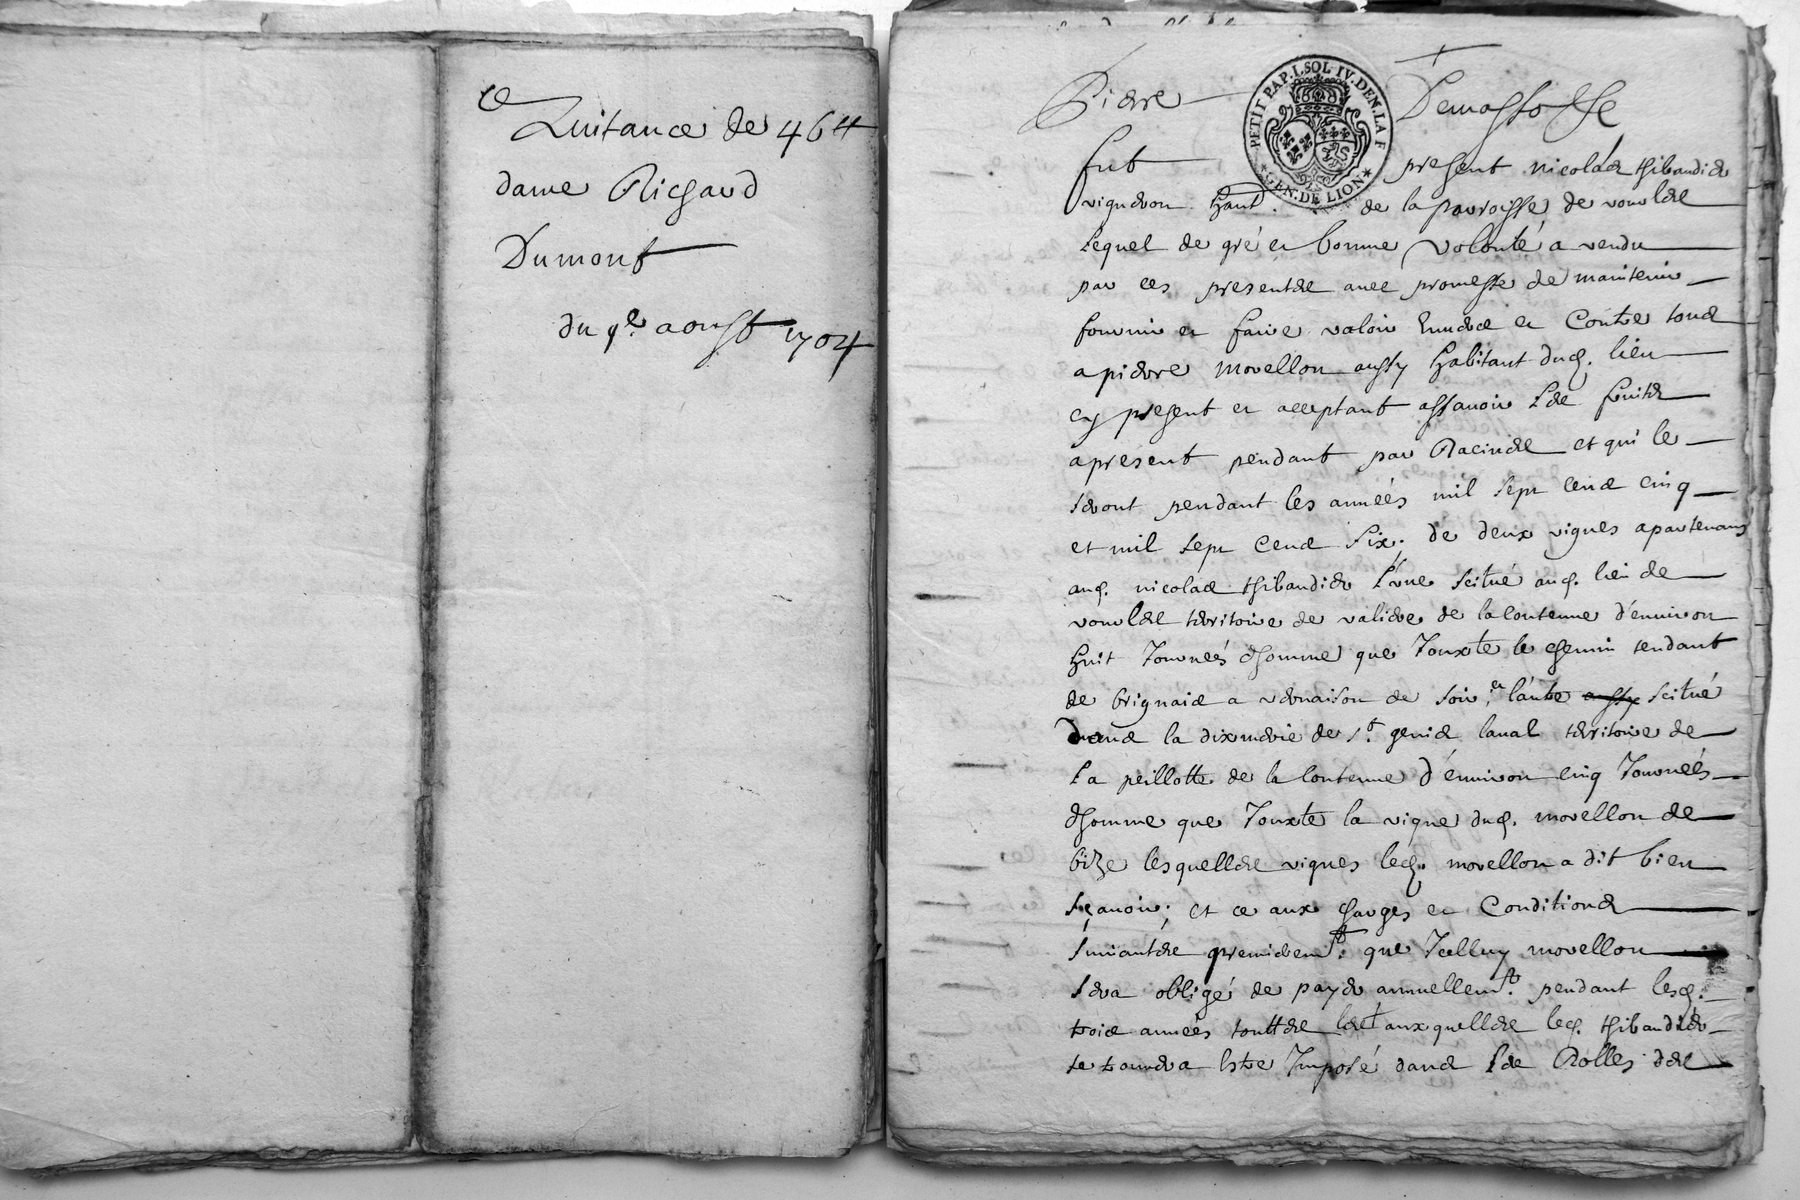 Quitance de 46 ₶
dame Richard
Dumont
du 9e. aoust 1704
PETIT PAP. 1.SOL IV.DEN. LA F
GEN. DE LION
Pierre Demasso
fut present nicolas thibaudier
vigneron habt. de la parroisse de vourles
lequel de gré et bonne volonté a vendu
par ces presentes avec promesse de maintenir
fournir et faire valoir envers et contre tous
a pierre morellon aussy habitant dud. lieu
cy present et acceptant assavoir les fruits
apresent pendant par Racines et qui le
seront pendant les années mil sept cens cinq
et mil sept cens six, de deux vignes apartenans
aud. nicolas thibaudier l'une scitué aud. lieu de
vourles territoire de valieres de la contenue d'environ
huit Journeés d'homme que Jouxte le chemin tendant
de brignais a vernaison de soir, et l'autre aussy scitué
dans la dixmerie de st. genis laval territoire de
la peillotte de la contenue d'environ cinq Journeés
d'homme que Jouxte la vigne dud. morellon de
bize lesquelles vignes led. morellon a dit bien
sçavoir; et ce aux charges et Conditions
suivantes premieremt. que Jcelluy morellon
sera obligé de payer annuellemt. pendant lesd.
trois années touttes les aux quelles led. thibaudier
se trouvera Estre Jmposé dans les Rolles des